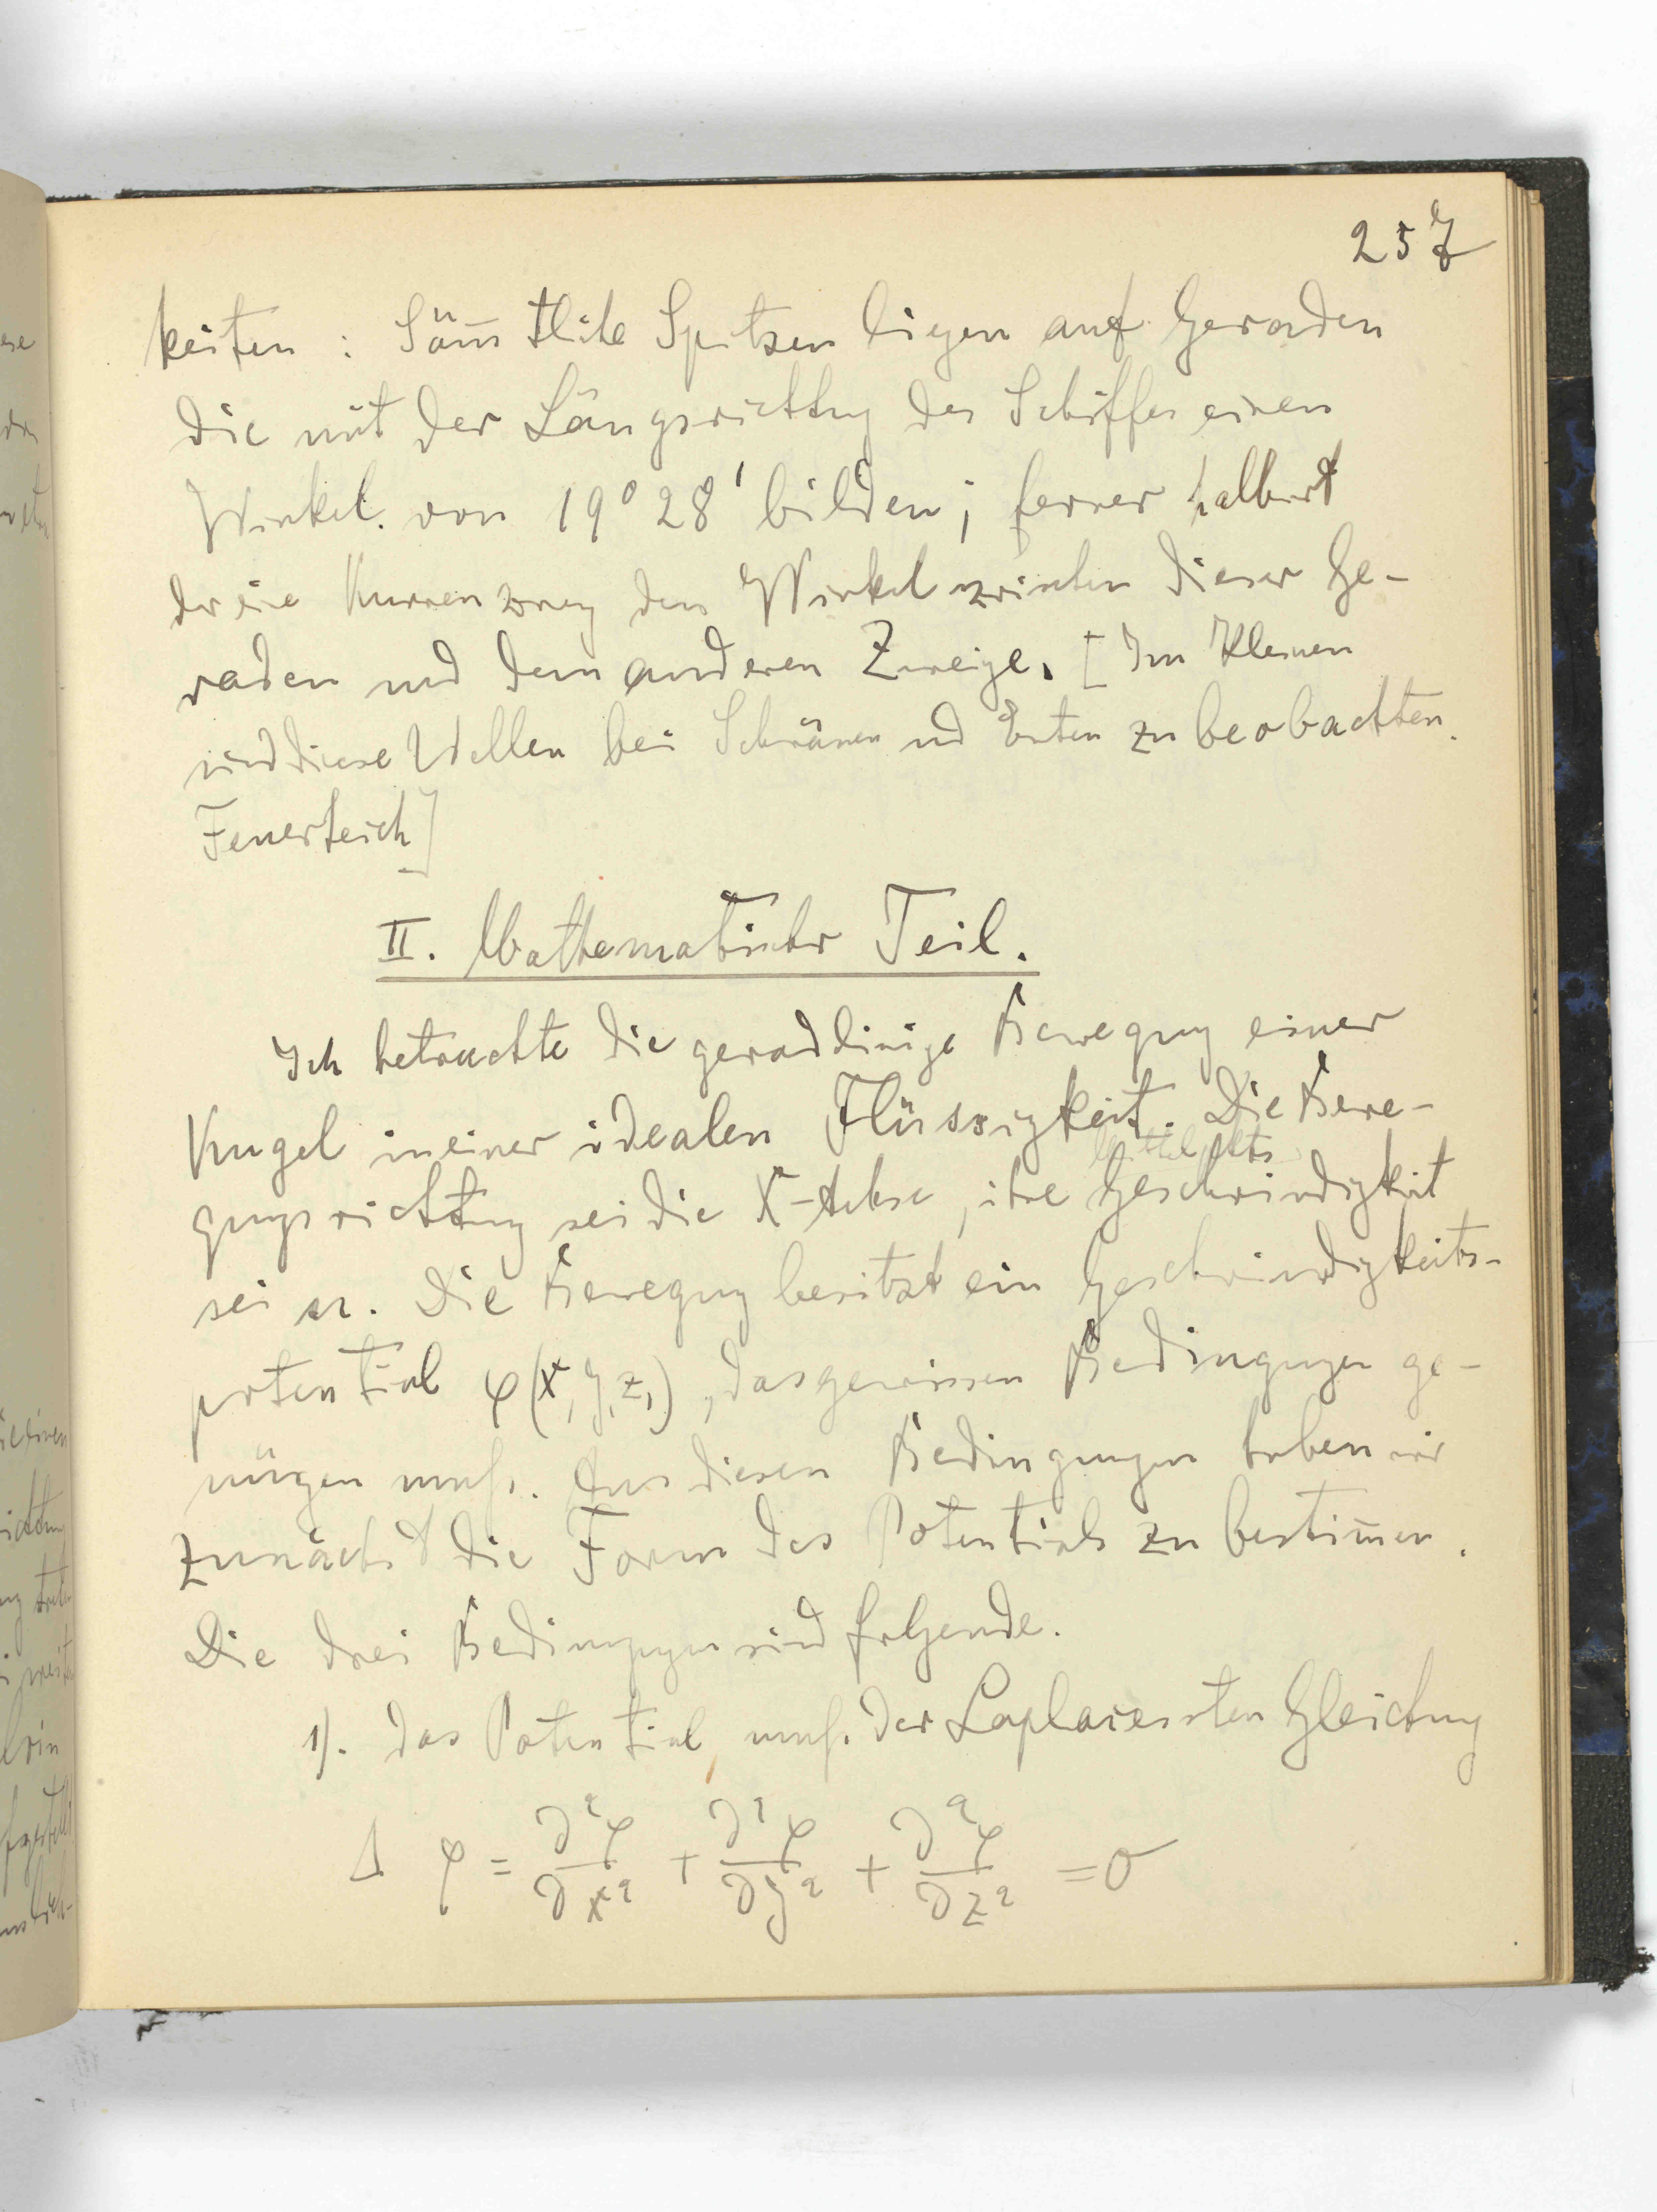 257
keiten : Säm̅tliche Spitzen liegen auf Geraden
die mit der Längsrichtung des Schiffes einen
Winkel. von 19° 28' bilden; ferner halbiert
der eine Kurvenzweig den Winkel zwischen dieser Ge-
raden und dem anderen Zweige. [Im Kleinen
sind diese Wellen bei Schwänen und Enten zu beobachten.
Feuerteich]
II. Mathematischer Teil.
Ich betrachte die geradlinige Bewegung einer
Kugel in einer idealen Flüssigkeit. Die Bewe-
gungsrichtung sei die X-Achse, ihre Geschwindigkeit
sei u. Die Bewegung besitzt ein Geschwindigkeits-
potential φ(x, y, z,), das gewissen Bedingungen ge-
nügen muß. Aus diesen Bedingungen haben wir
zunächst die Form des Potentials zu bestim̅en.
Die drei Bedingungen sind folgende.
1). Das Potential muß der Laplaceschen Gleichung
Δ φ = ∂²φ/∂x² + ∂²φ/∂y² + ∂²φ/∂z² = 0